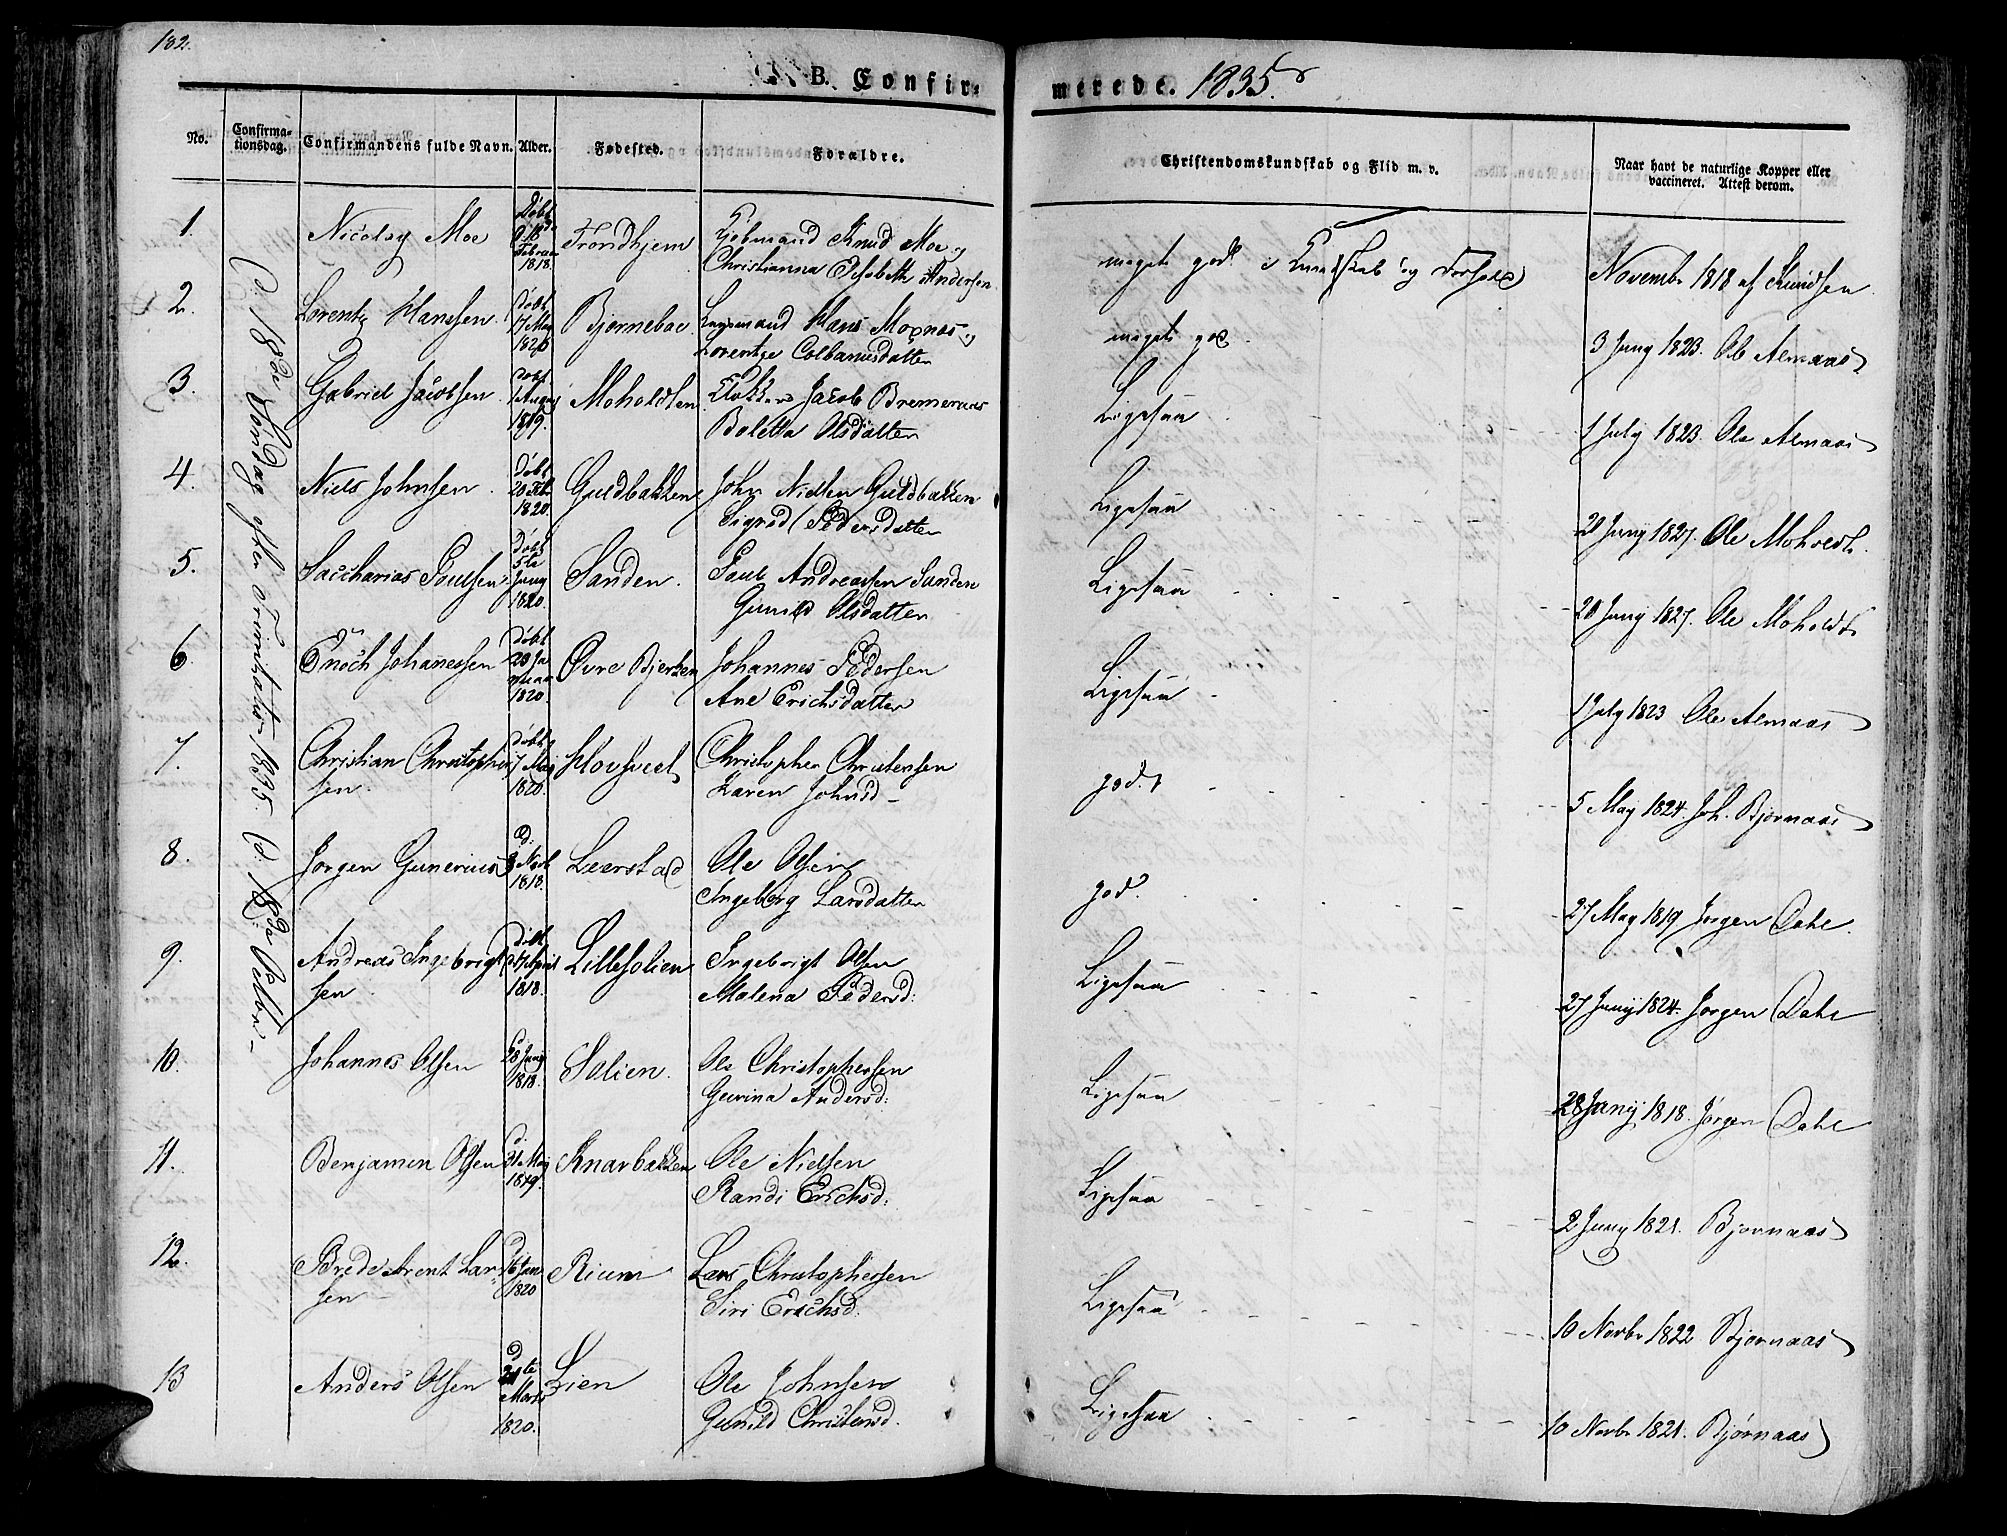 182.
B. Confir-
merede. 1835.
No.
Confirma-
tionsdag.
Confirmandens fulde Navn.
Alder.
Fødested.
Forældre.
Christendomskundskab og Flid m. v.
Naar havt de naturlige Kopper eller
vaccineret. Attest derom.
d. 18de Søndag efter Trinitatis 1835. d. 18de Octbr
1.
Nicolay Moe
Døbt
Februar
1818.
Trondhjem
Kjøbmand Knud Moe og
Christianna Elisabeth Andersen
meget god i Kundskab og Forhold
Novembr 1818 af Knudsen
2.
Lorentz Hanssen
Døbt
17 May
1820
Bjørnebae
Hans Moxnes og
Lorentze Colbanusdatter
meget god
3 Juny 1823. Ole Almaas
3.
Gabriel Jacobsen
Døbt
1 August
1819.
Moholdten
Klokker Jacob Bremeraas
Boletta Olsdatter
Ligesaa
1 July 1823. Ole Almaas
4.
Niels Johnsen
Døbt
20 Feb
1820.
Guldbakken
John Nielsen Guldbakken
Sigrid Pedersdatter
Ligesaa
21 Juny 1827. Ole Moholdt
5.
Sacharias Poulsen
Døbt
5te
Juny
1820.
Sanden.
Poul Andreassen Sanden
Gunild Olsdatter
Ligesaa
20 Juny 1827. Ole Moholdt
6.
Enoch Johanessen
Døbt
23 Ja
nuar
1820.
Øvre Bjerken
Johannes Pedersen
Ane Erichsdatter
Ligesaa
1 July 1823 Ole Almaas
7.
Christian Christopher
sen.
Døbt
7 May
1820.
Christopher Christensen
Karen Johnsd
god.
5 May 1824. Joh. Bjørnaas
8.
Jørgen Gunerius
d.
3 Novb
1818.
Leerstad
Ole Olsen
Ingeborg Larsdatter
god.
27 May 1819 Jørgen Dahl.
9.
Andreas Ingebrigt
sen
Døbt
27 April
1818.
Lillesolien
Ingebrigt Olsen
Malena Pedersd:
Ligesaa
27 Juny 1824. Jørgen Dahl
10.
Johannes Olsen
28 Juny
1818.
Solien.
Ole Christophersen
Gurina Andersd:
Ligesaa
28 Juny 1818. Jørgen Dahl
11.
Benjamin Olsen
d.
31 May
1819.
Knarbakken
Ole Nielsen
Randi Erichsd:
Ligesaa
2 Juny 1821. Bjørnaas
12.
Brede Arent Lar-
sen
d
16 Jan
1820
Rium
Lars Christophersen
Siri Erichsd.
Ligesaa
10 Novbr 1822 Bjørnaas
13
Anders Olsen
d
21te
Marts
1820.
Lien
Ole Johnsen
Gunild Christensd.
Ligesaa
10 Novbr 1821. Bjørnaas